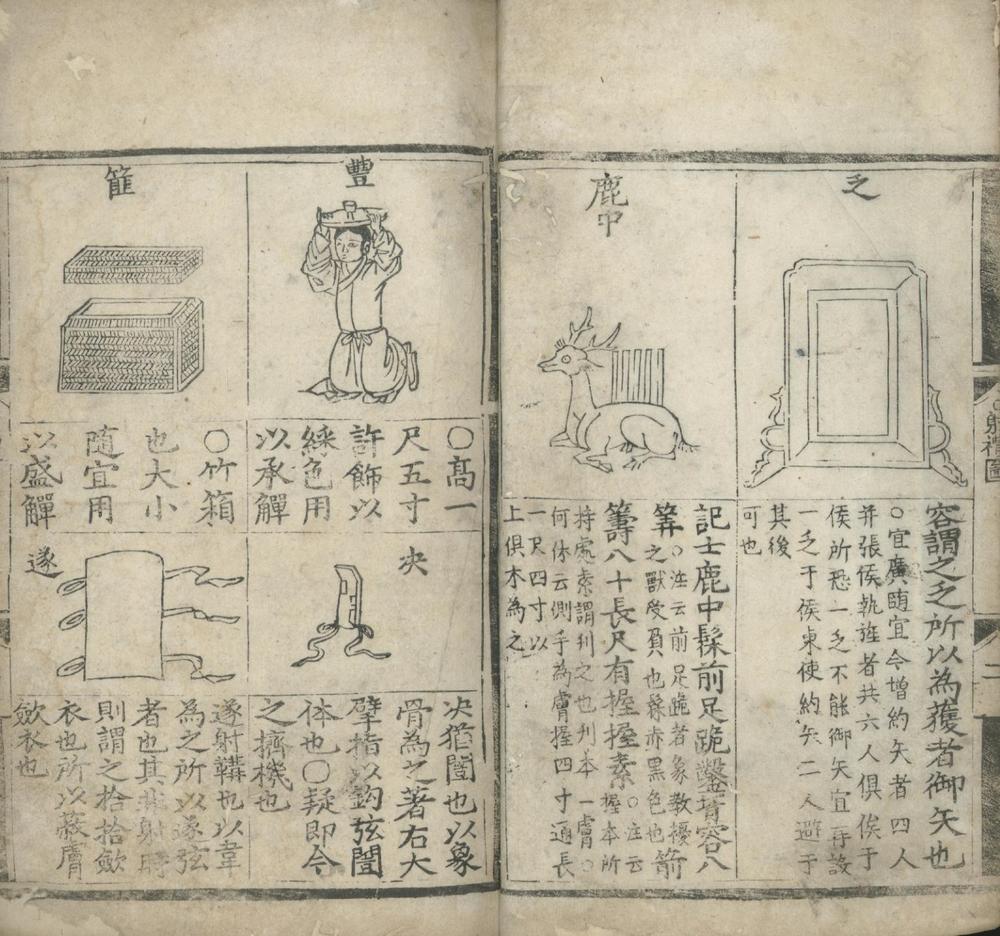 射禮圖
二
乏
容謂之乏所以為獲者御矢也
○宜廣随宜今增約矢者四人
并張侯執旌者共六人俱俟于
侯所恐一乏不能御矢宜再設
一乏于侯東使約矢二人避于
其後
可也
鹿中
記士鹿中髹前足跪鑿背容八
筭○注云前足跪者象敎擾
之獸受負也髹赤黑色也箭
籌八十長尺有握握素○注云
握本所
持處素謂刋之也刋本一膚○
何休云側手為膚握四寸通長
一尺四寸以
上俱木為之
豐
○髙一
尺五寸
許飾以
綵色用
以承觶
決
决猶闓也以象
骨為之著右大
擘指以鈎弦闓
体也○疑即今
之擠機也
篚
○竹箱
也大小
隨宜用
以盛觶
遂
遂射韝也以韋
為之所以遂弦
者也其非射時
則謂之拾拾斂
衣也所以蔽膚
斂衣也